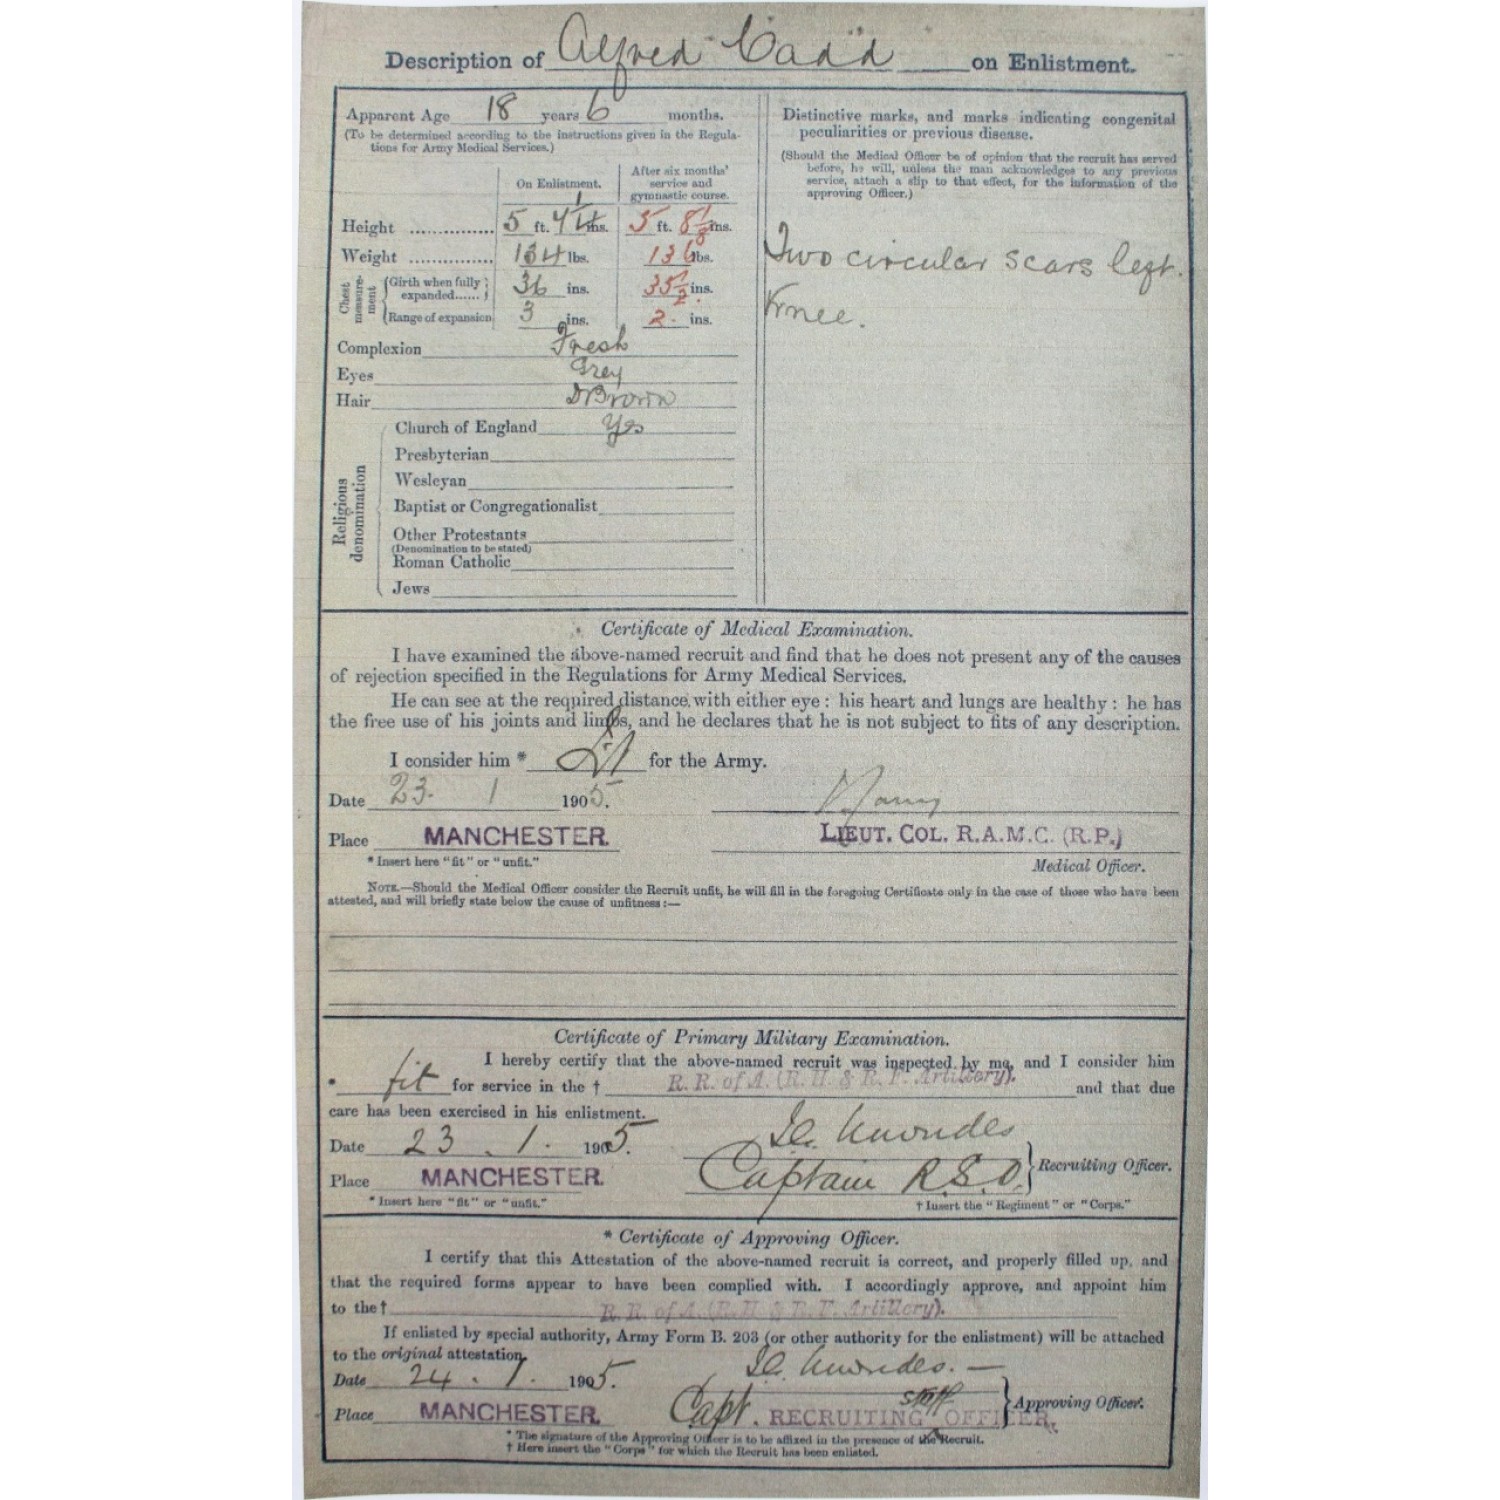 Description of Alfred Cadd on Enlistment.
Apparent Age 18 years 6 months.
(To be determined according to the instructions given in the Regula-
tions for Army Medical Services.)
On Enlistment.
After six months'
service and
gymnastic course.
Height .............. 5 ft. ins. 5 ft. 8 1/8 ins.
Weight .............. 134 lbs. 136 lbs.
Chest measure-ment
Girth when fully expanded...... 36 ins. 35 1/2 ins.
Range of expansion 3 ins. 2 ins.
Complexion Fresh
Eyes Grey
Hair D Brown
Religious denomination
Church of England Yes
Presbyterian
Wesleyan
Baptist or Congregationalist
Other Protestants
(Denomination to be stated)
Roman Catholic
Jews
Distinctive marks, and marks indicating congenital
peculiarities or previous disease.
(Should the Medical Officer be of opinion that the recruit has served
before, he will, unless the man acknowledges to any previous
service, attach a slip to that effect, for the information of the
approving Officer.)
Two circular scars left.
Knee.
Certificate of Medical Examination.
I have examined the above-named recruit and find that he does not present any of the causes
of rejection specified in the Regulations for Army Medical Services.
He can see at the required distance with either eye : his heart and lungs are healthy : he has
the free use of his joints and limbs, and he declares that he is not subject to fits of any description.
I consider him * fit for the Army.
Date 23. 1 1905.
Place MANCHESTER.
LIEUT. COL. R.A.M.C. (R.P.)
* Insert here "fit" or "unfit."
Medical Officer.
NOTE.—Should the Medical Officer consider the Recruit unfit, he will fill in the foregoing Certificate only in the case of those who have been
attested, and will briefly state below the cause of unfitness :—
Certificate of Primary Military Examination.
I hereby certify that the above-named recruit was inspected by me, and I consider him
* fit for service in the † R. R. of A. (R. H. & R. F. Artillery). and that due
care has been exercised in his enlistment.
Date 23 . 1 . 1905.
Place MANCHESTER.
Captain R.S.O.
Recruiting Officer.
* Insert here "fit" or "unfit."
† Insert the "Regiment" or "Corps."
* Certificate of Approving Officer.
I certify that this Attestation of the above-named recruit is correct, and properly filled up, and
that the required forms appear to have been complied with. I accordingly approve, and appoint him
to the † R. R. of A. (R. H. & R. F. Artillery).
If enlisted by special authority, Army Form B. 203 (or other authority for the enlistment) will be attached
to the original attestation.
Date 24 . 1 . 1905.
Place MANCHESTER.
Capt. RECRUITING Staff OFFICER.
Approving Officer.
* The signature of the Approving Officer is to be affixed in the presence of the Recruit.
† Here insert the "Corps" for which the Recruit has been enlisted.